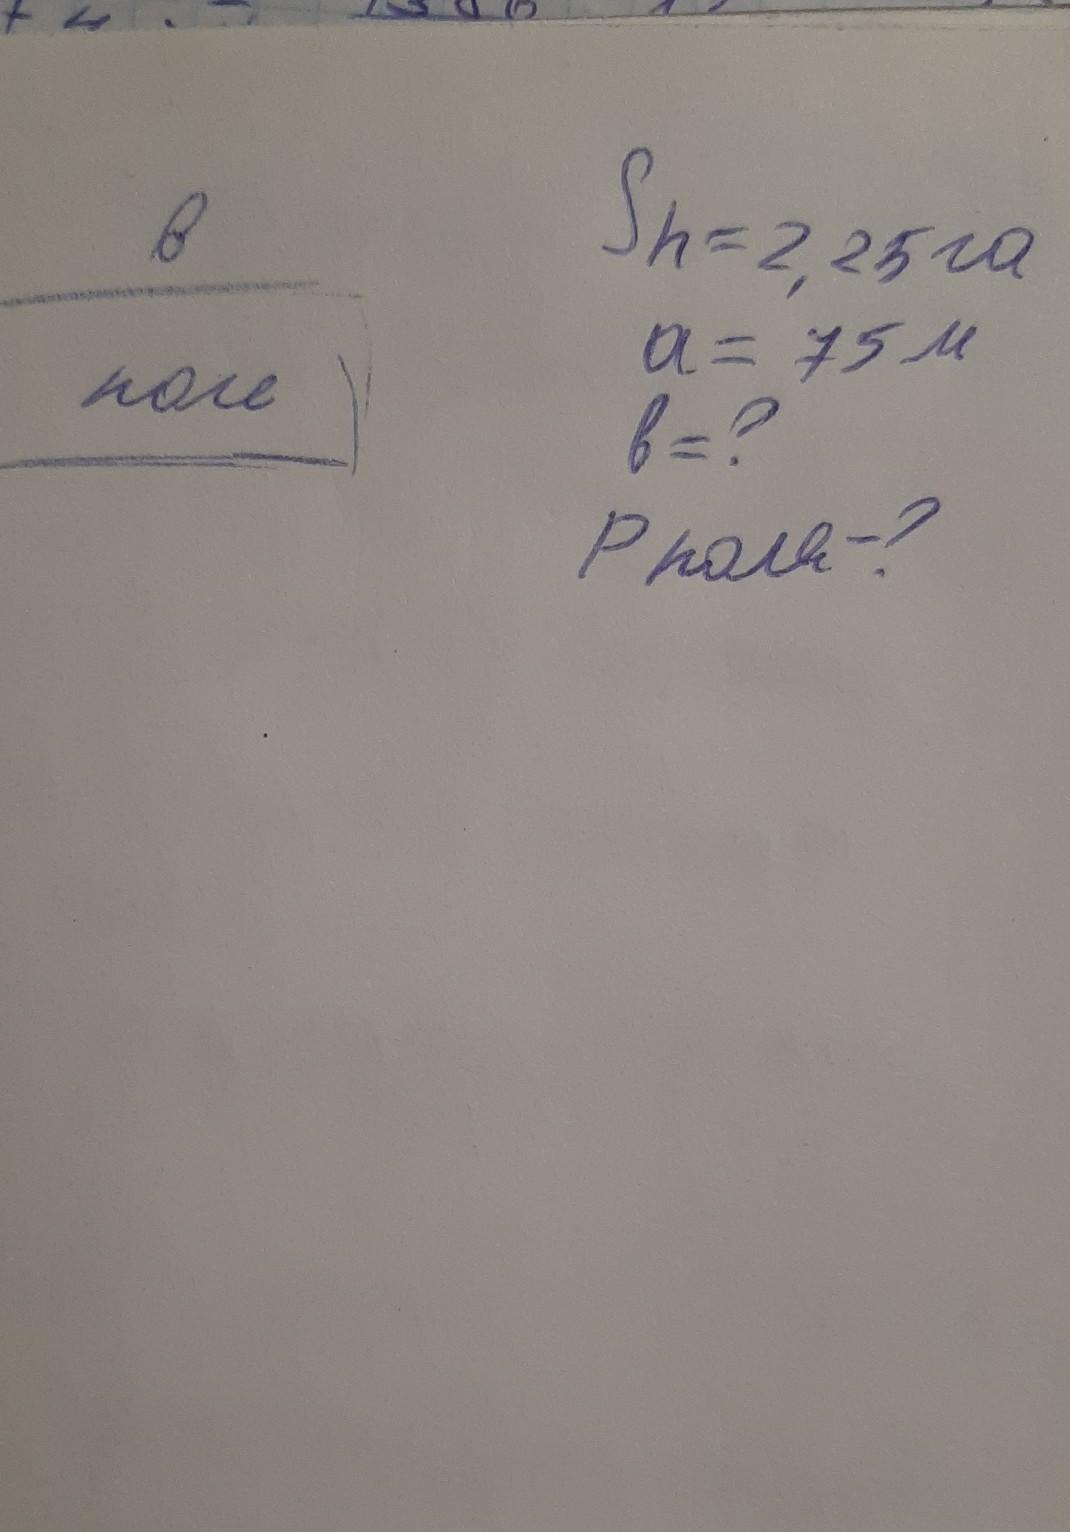 в
поле
Sп=2,25га
a= 75 м
в=?
P поля-?